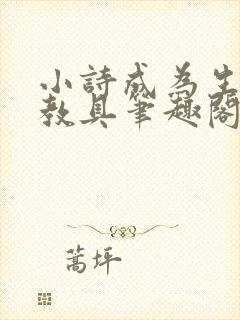 小詩成為生
教具筆趣閣
蒿坪